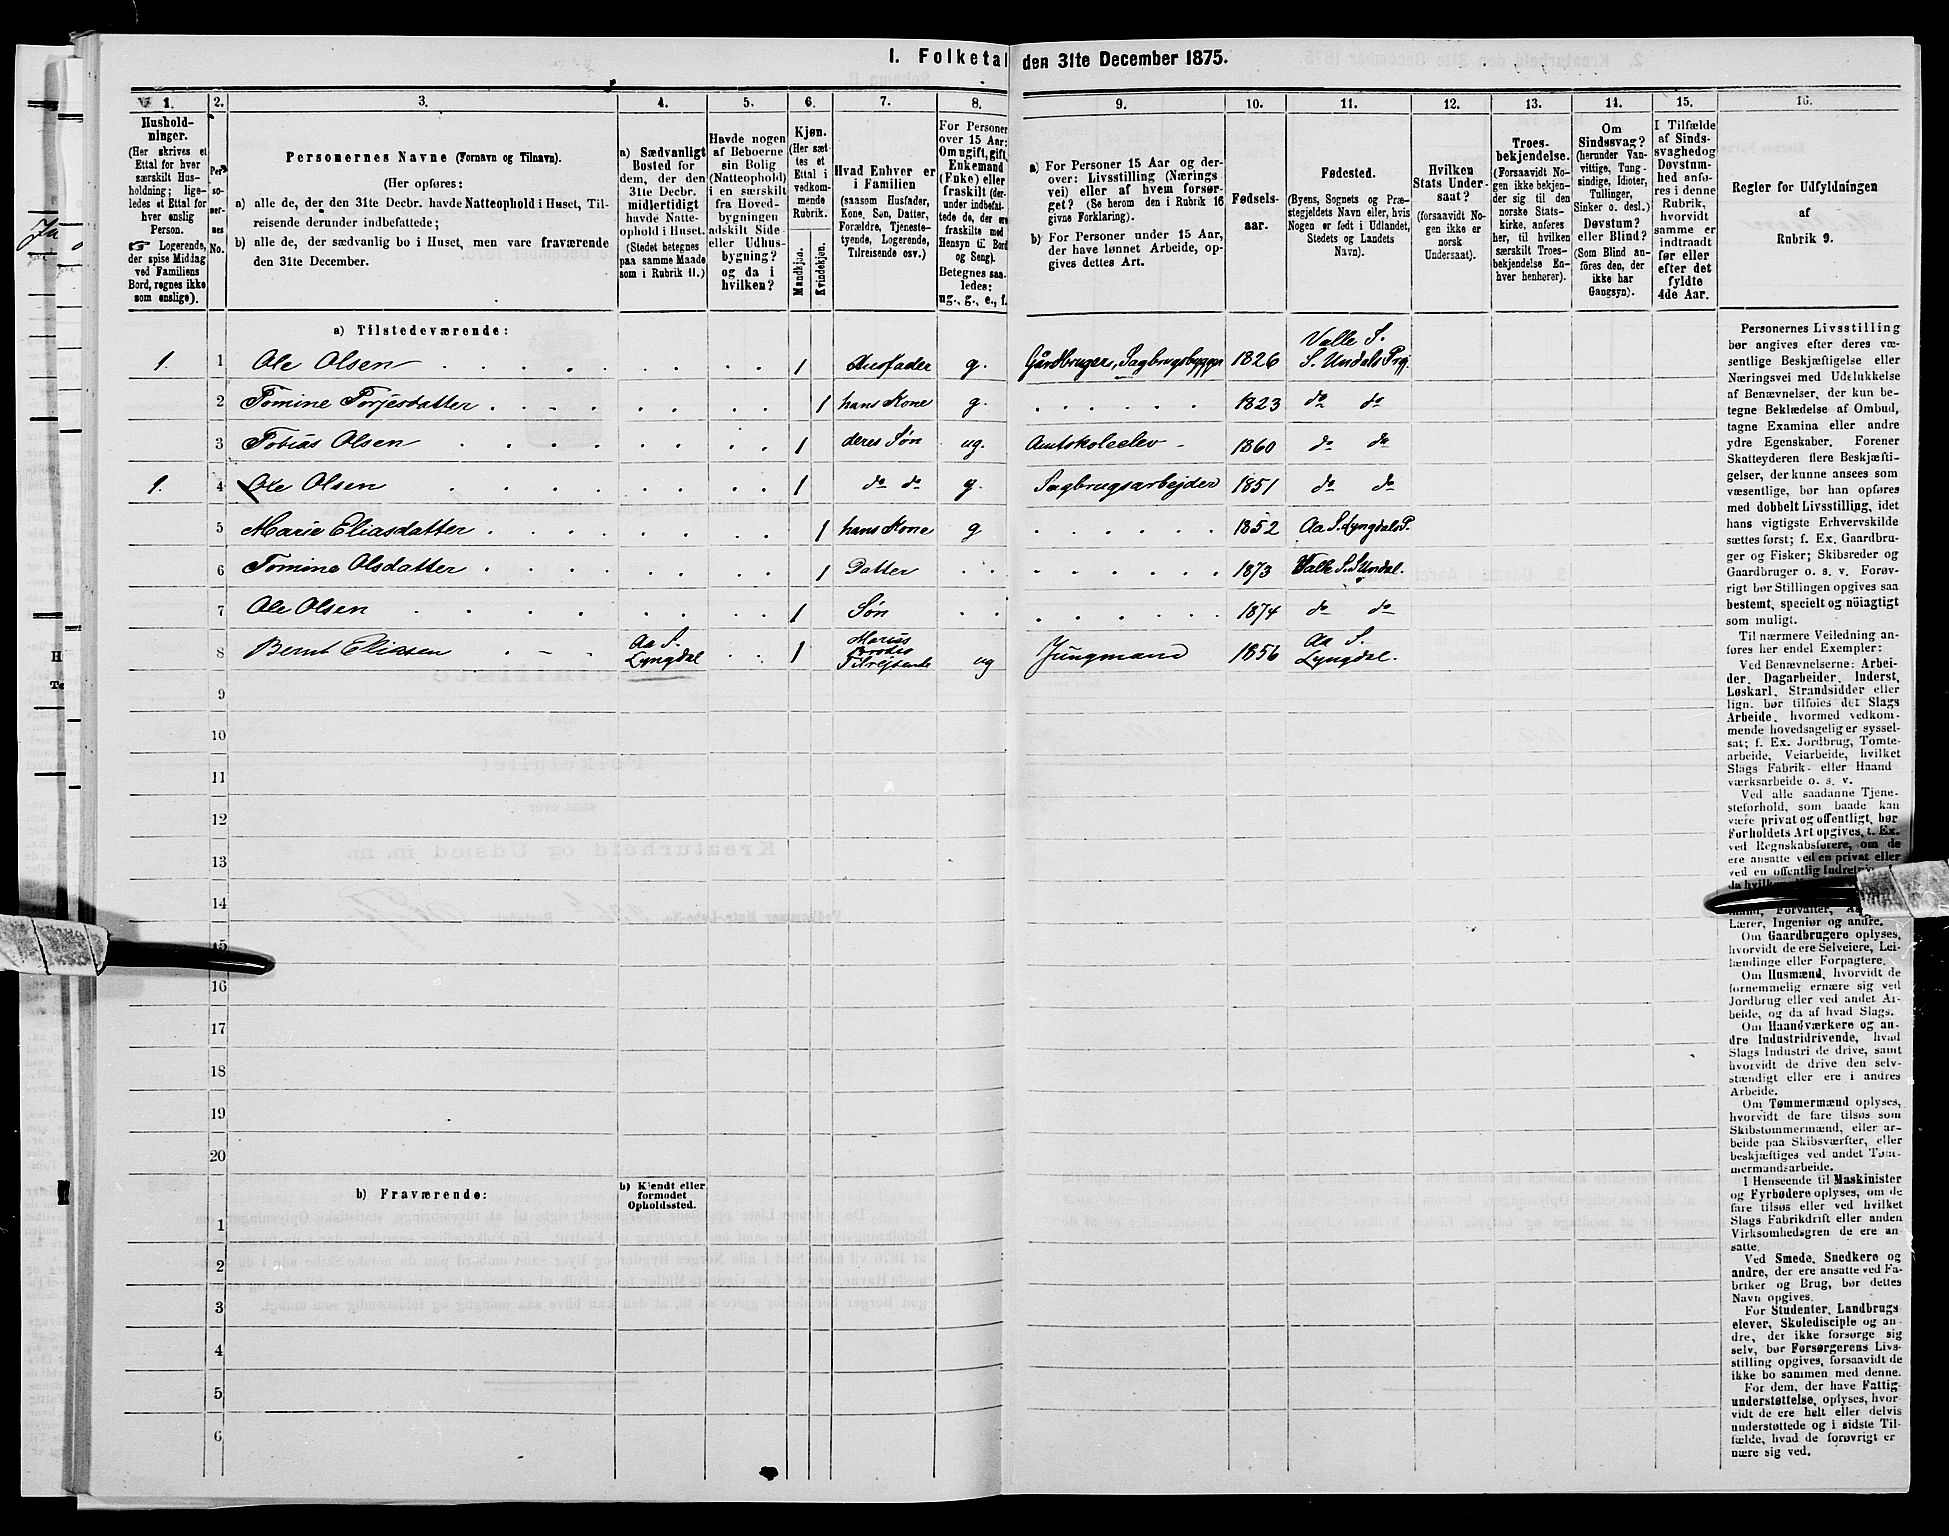 I. Folketal den 31te December 1875.
1. 2. 3. 4. 5. 6. 7. 8. 9. 10. 11. 12. 13. 14. 15. 16.
Hushold-
ninger.
(Her skrives et
Ettal for hver
særskilt Hus-
holdning; lige-
ledes et Ettal for
hver enslig
Person.
☞ Logerende,
der spise Middag
ved Familiens
Bord, regnes ikke
som enslige).
Per-
so-
ner-
nes
No.
Personernes Navne (Fornavn og Tilnavn).
(Her opføres:
a) alle de, der den 31te Decbr. havde Natteophold i Huset, Til-
reisende derunder indbefattede;
b) alle de, der sædvanlig bo i Huset, men vare fraværende
den 31te December.
a) Sædvanligt
Bosted for
dem, der den
31te Decbr.
midlertidigt
havde Natte-
ophold i Huset.
(Stedet betegnes
paa samme Maade
som i Rubrik 11.)
Havde nogen
af Beboerne
sin Bolig
(Natteophold)
i en særskilt
fra Hoved-
bygningen
adskilt Side-
eller Udhus-
bygning?
og da i
hvilken?
Kjøn.
(Her sæt-
tes et
Ettal i
vedkom-
mende
Rubrik.
Mandkjøn.
Kvindekjøn.
Hvad Enhver er
i Familien
(saasom Husfader,
Kone, Søn, Datter,
Forældre, Tjeneste-
tyende, Logerende,
Tilreisende osv.)
For Personer
over 15 Aar:
Om ugift, gift,
Enkemand
(Enke) eller
fraskilt (der-
under indbefat-
tede de, der ere
fraskilte med
Hensyn til Bord
og Seng).
Betegnes saa-
ledes:
ug., g., e., f.
a) For Personer 15 Aar og der-
over: Livsstilling (Nærings
vei) eller af hvem forsør-
get? (Se herom den i Rubrik 16
givne Forklaring).
b) For Personer under 15 Aar,
der have lønnet Arbeide, op-
gives dettes Art.
Fødsels-
aar.
Fødested.
(Byens, Sognets og Præ-
stegjeldets Navn eller, hvis
Nogen er født i Udlandet,
Stedets og Landets
Navn).
Hvilken
Stats Under-
saat?
(forsaavidt No-
gen ikke er
norsk
Undersaat).
Troes-
bekjendelse.
(Forsaavidt No-
gen ikke bekjen-
der sig til den
norske Stats-
kirke, anføres
her, til hvilken
særskilt Troes-
bekjendelse En-
hver henhører).
Om
Sindssvag?
(herunder Van-
vittige, Tung-
sindige, Idioter,
Tullinger,
Sinker o. desl.)
Døvstum?
eller Blind?
(Som Blind an-
føres den, der
ikke har
Gangsyn).
I Tilfælde
af Sinds-
svaghed og
Døvstum-
hed anfø-
res i denne
Rubrik,
hvorvidt
samme er
indtraadt
før eller
efter det
fyldte
4de Aar.
Regler for Udfyldningen
af
Rubrik 9.
a) Tilstedeværende:
1. 1 Ole Olsen 1 Husfader g. Gårdbruger, Sagbrugsbygger 1826 Valle S. S. Undals Prgj.
2 Tomine Torjesdatter 1 hans Kone g. 1823 do do
3 Tobias Olsen 1 deres Søn ug. Amtskoleelev 1860 do do
1. 4 Ole Olsen 1 do do g. Sagbrugsarbejder 1851 do do
5 Marie Eliasdatter 1 hans Kone g 1852 Aa S. Lyngdals P.
6 Tomine Olsdatter 1 Datter 1873 Valle S. S. Undal.
7 Ole Olsen 1 Søn 1874 do do
8 Bernt Eliasen Aa S. Lyngdal 1 Tilrejsende ug Jungmand 1856 Aa S. Lyngdal.
9
10
11
12
13
14
15
16
17
18
19
20
b) Fraværende:
b) Kjendt eller
formodet
Opholdssted.
1
2
3
4
5
6
Personernes Livsstilling
bør angives efter deres væ-
sentlige Beskjæftigelse eller
Næringsvei med Udelukkelse
af Benævnelser, der kun be-
tegne Beklædelse af Ombud,
tagne Examina eller andre
ydre Egenskaber. Forener
Skatteyderen flere Beskjæfti-
gelser, der kunne ansees som
væsentlige, bør han opføres
med dobbelt Livsstilling, idet
hans vigtigste Erhvervskilde
sættes først; f. Ex. Gaardbru-
ger og Fisker; Skibsreder og
Gaardbruger o. s. v. Forøv-
rigt bør Stillingen opgives saa
bestemt, specielt og nöiagtigt
som muligt.
Til nærmere Veiledning an-
føres her endel Exempler:
Ved Benævnelserne: Arbei-
der, Dagarbeider, Inderst,
Løskarl, Strandsidder eller
lign. bør tilføies det Slags
Arbeide, hvormed vedkom-
mende hovedsagelig er syssel-
sat; f. Ex. Jordbrug, Tomte-
arbeide, Veiarbeide, hvilket
Slags Fabrik- eller Haand
værksarbeide o. s. v.
Ved alle saadanne Tjene-
steforhold, som baade kan
være privat og offentligt, bør
Forholdets Art opgives, t. Ex.
ved Regnskabsførere, om de
ere ansatte ved en privat eller
ved en offentlig
Lærer, Ingeniør og andre.
Om Gaardbrugere oplyses,
hvorvidt de ere Selveiere, Lei-
lændinge eller Forpagtere.
Om Husmænd, hvorvidt de
fornemmelig ernære sig ved
Jordbrug eller ved andet Ar-
beide, og da af hvad Slags.
Om Haandværkere og an-
dre Industridrivende, hvad
Slags Industri de drive, samt
hvorvidt de drive den selv-
stændigt eller ere i andres
Arbeide.
Om Tømmermænd oplyses,
hvorvidt de fare tilsøs som
Skibstømmermænd, eller ar-
beide paa Skibsværfter, eller
beskjæftiges ved andet Tøm-
mermandsarbeide.
I Henseende til Maskinister
og Fyrbødere oplyses, om de
fare tilsøs eller ved hvilket
Slags Fabrikdrift eller anden
Virksomhedsgren de ere an-
satte.
Ved Smede, Snedkere og
andre, der ere ansatte ved Fa-
briker og Brug, bør dettes
Navn opgives.
For Studenter, Landbrugs
elever, Skoledisciple og an-
dre, der ikke forsørge sig
selv, bør Forsørgerens Livs-
stilling opgives, forsaavidt de
ikke bo sammen med denne.
For dem, der have Fattig-
understøttelse, oplyses, hvor-
vidt de ere helt eller delvis
understøttede og i sidste Til-
fælde, hvad de forøvrigt er
nære sig ved.